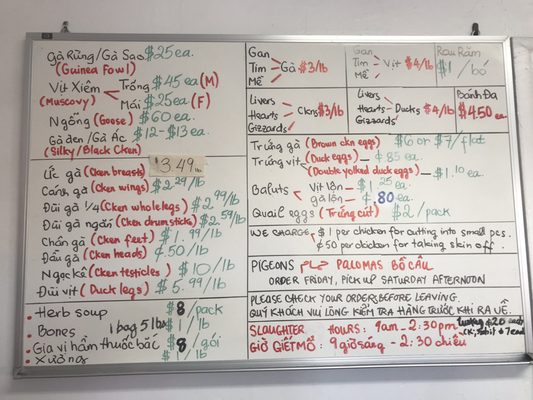 gà Rừng/Gà Sao $25 ea.
(Guinea Fowl)
Vịt Xiêm Trống $45 ea (M)
(Muscovy) Mái $25 ea. (F)
Ngỗng (Goose) $60 ea.
Gà đen/Gà Ác $12-$13 ea.
(Silky/Black Cken)
Ức gà (Cken breasts) $3.49 lb
Cánh gà (Cken wings) $2.29/lb
Đùi gà 1/4 (Cken whole legs) $2.99/lb
Đùi gà ngắn (Cken drum sticks) $2.59/lb
Chân gà (Cken feet) $1.99/lb
Đầu gà (Cken heads) ¢50/lb
Ngọc kê (Cken testicles) $10/lb
Đùi vịt (Duck legs) $5.99/lb
Herb soup $8/pack
Bones 1 bag 5 lbs $1/lb
Gia vị hầm thuốc bắc $8/gói
Xương $1/lb
Gan
Tim Gà $3/lb
Mề
Gan
Tim Vịt $4/lb
Mề
Rau Răm
$1/bó
Livers
Hearts Ckns $3/lb
Gizzards
Livers
Hearts Ducks $4/lb
Gizzards
Bánh Đa
$4.50 ea.
Trứng gà (Brown ckn eggs) $6 or $7/flat
Trứng vịt (Duck eggs) ¢85 ea.
(Double yolked duck eggs) $1.10 ea.
Baluts Vịt lộn $1.25 ea.
gà lộn ¢.80 ea.
Quail eggs (Trứng cút) $2/pack
WE CHARGE $1 per chicken for cutting into small pcs.
¢50 per chicken for taking skin off.
PIGEONS حمام PALOMAS BỒ CÂU
ORDER FRIDAY, PICK UP SATURDAY AFTERNOON
PLEASE CHECK YOUR ORDERS BEFORE LEAVING.
QUÝ KHÁCH VUI LÒNG KIỂM TRA HÀNG TRƯỚC KHI RA VỀ.
SLAUGHTER HOURS: 9am - 2:30pm
GIỜ GIẾT MỔ: 9 giờ sáng - 2:30 chiều